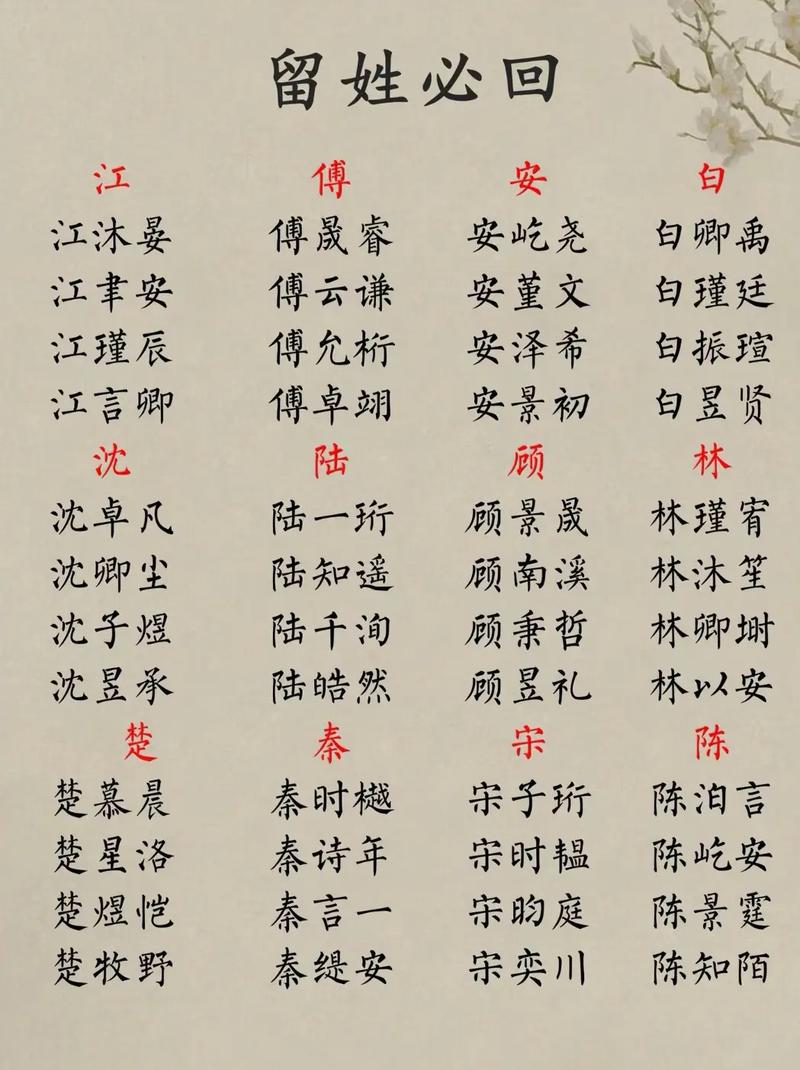 留姓必回
江 傅 安 白
江沐晏 傅晟睿 安屹尧 白卿禹
江聿安 傅云谦 安堇文 白瑾廷
江瑾辰 傅允桁 安泽希 白振瑄
江言卿 傅卓翊 安景初 白昱贤
沈 陆 顾 林
沈卓凡 陆一珩 顾景晟 林瑾宥
沈卿尘 陆知遥 顾南溪 林沐笙
沈子煜 陆千洵 顾秉哲 林卿埘
沈昱承 陆皓然 顾昱礼 林以安
楚 秦 宋 陈
楚慕晨 秦时樾 宋子珩 陈泊言
楚星洛 秦诗年 宋时韫 陈屹安
楚煜恺 秦言一 宋昀庭 陈景霆
楚牧野 秦缇安 宋奕川 陈知陌